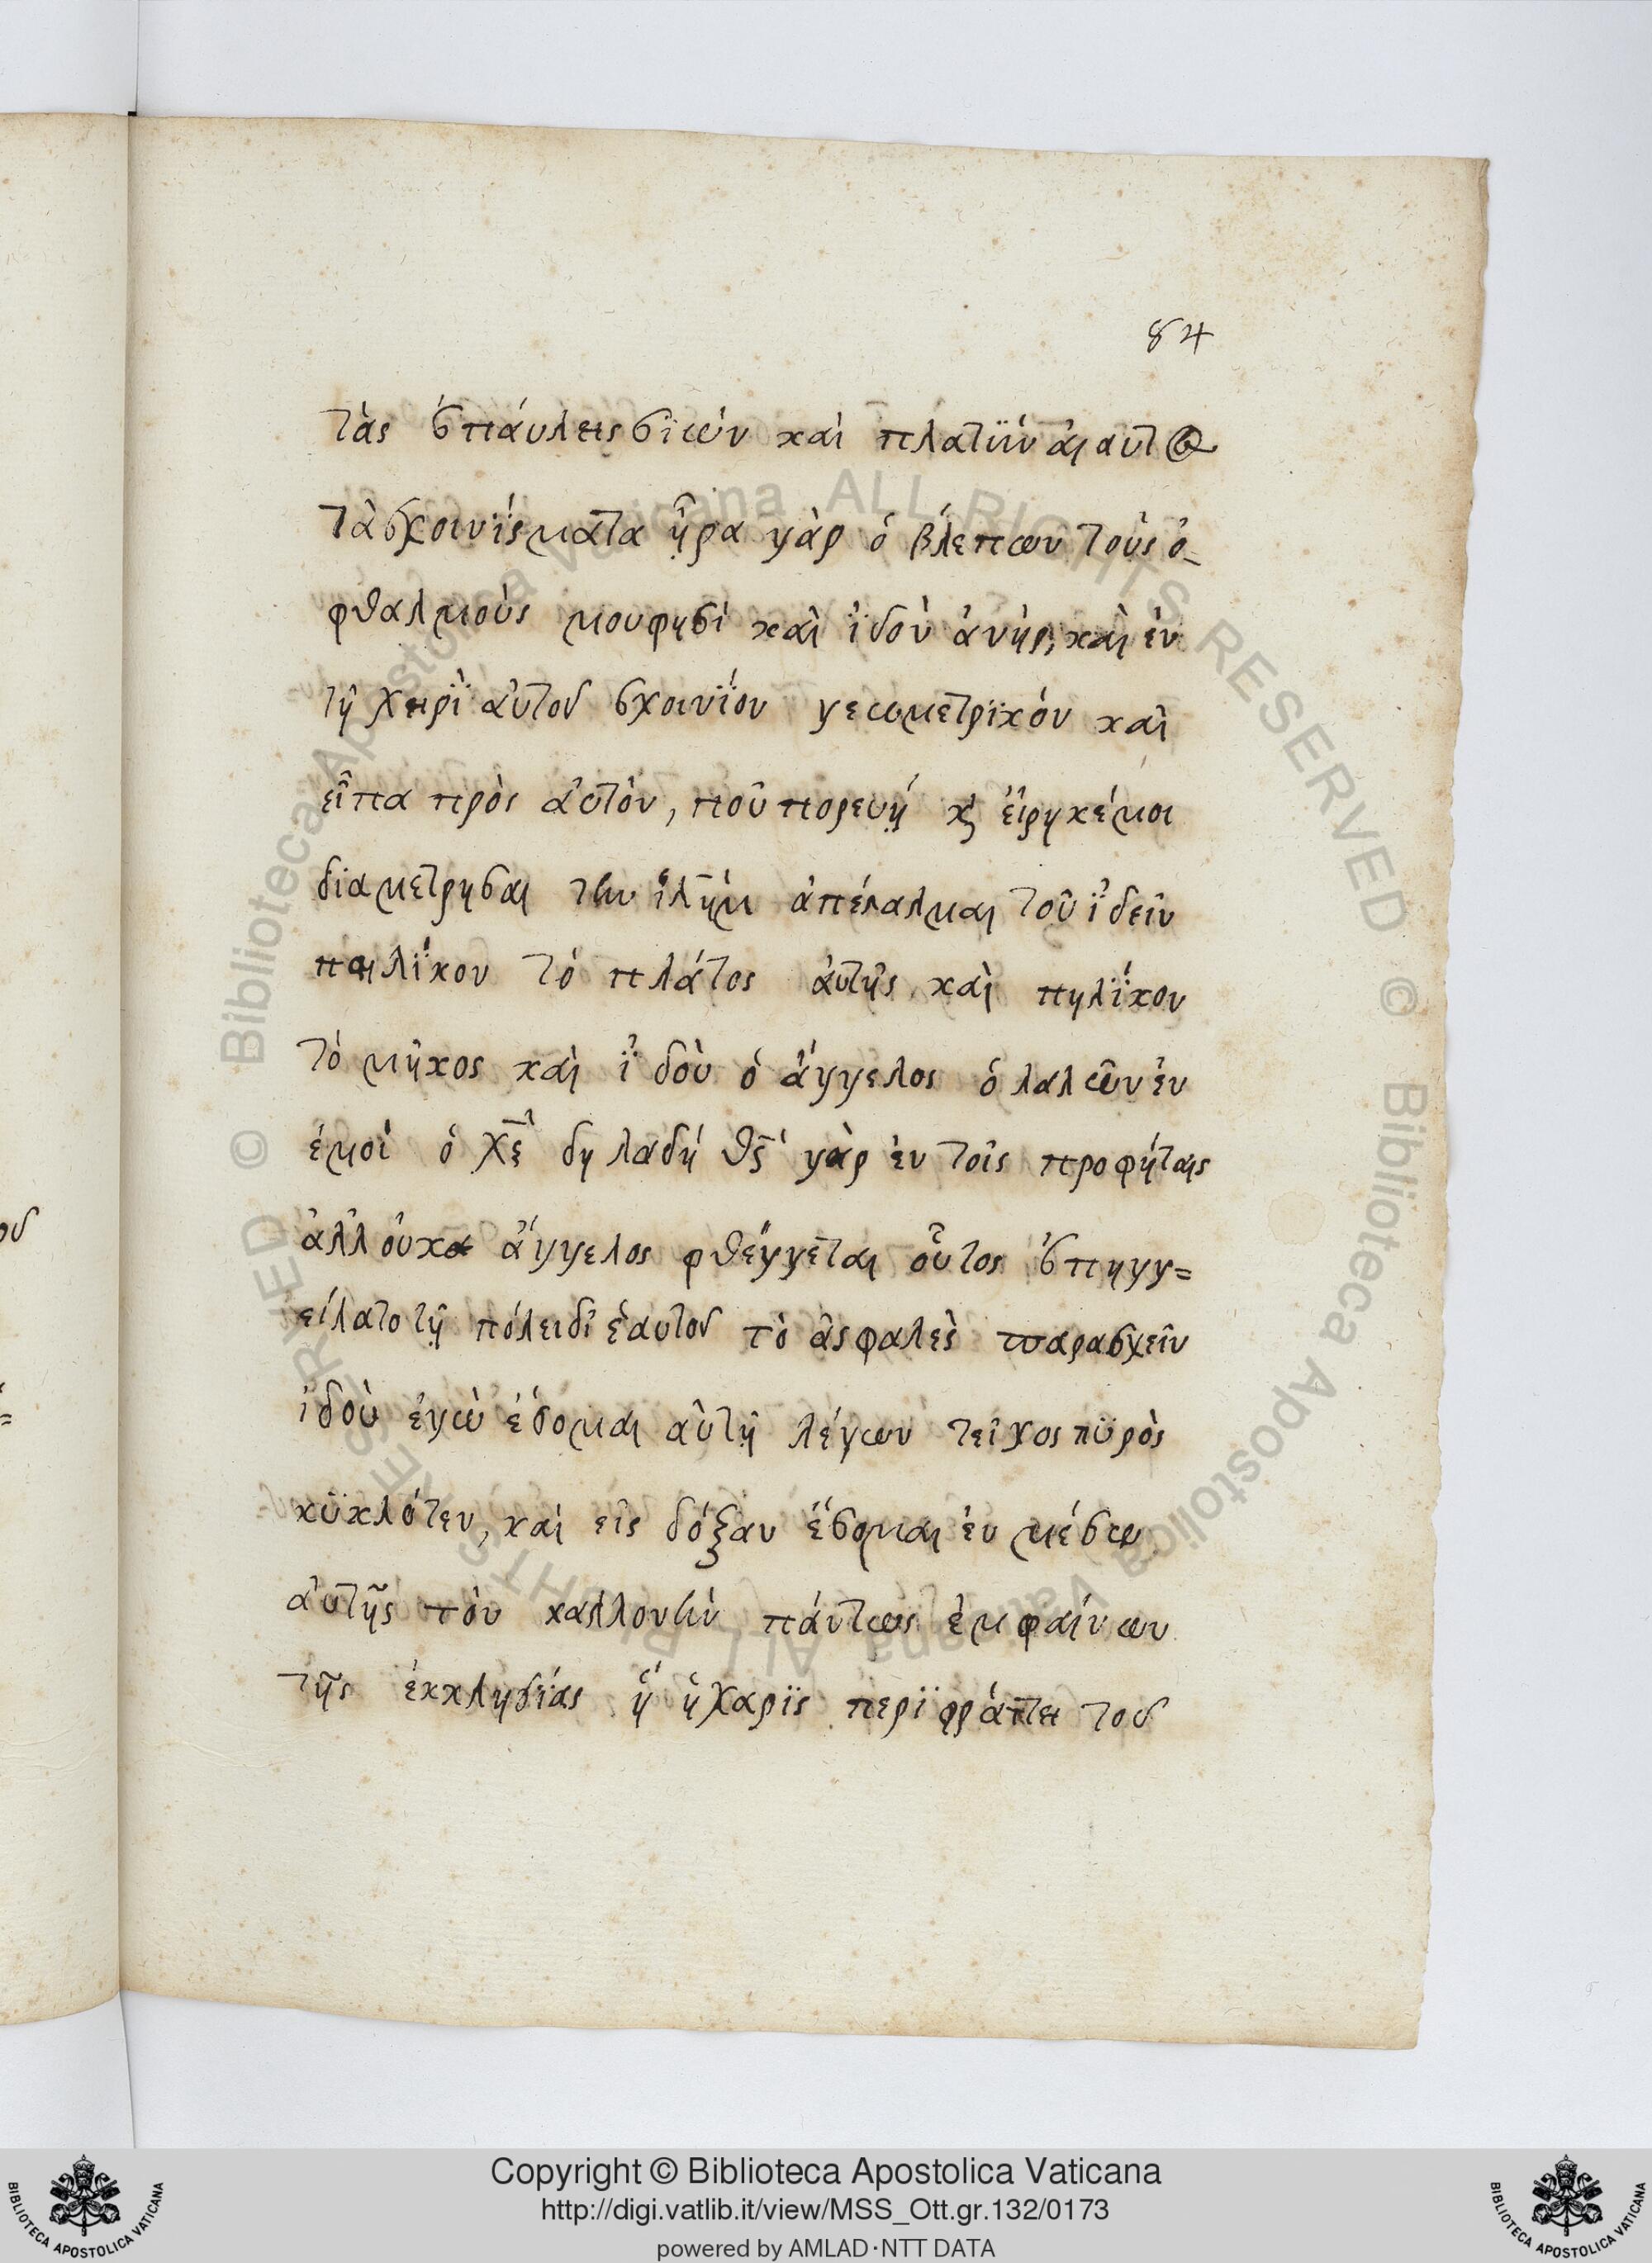 84
τὰς ἐπάυλεις σϊών καὶ πλατΰναι αὐτ
τὰ σχοινΐσματα ᾖρα γὰρ ὁ βλέπων τοὺς ὀ-
φθαλμοὺς μου φησί καὶ ἰ̈δοὺ ἀνήρ, καὶ ἐν
τῇ χειρῒ αὐτοῦ σχοινΐον γεωμετρϊκόν καὶ
εἶπα πρὸς αὐτὸν, ποῦ πορευῄ κ, εἴρηκέ μοι
διαμετρῆσαι τὴν ἱλὴμ ἀπέσταλμαι τοῦ ἰ̈δεῖν
πηλΐκον τὸ πλάτος ἀυτῆς καὶ πηλΐκον
τὸ μῆκος καὶ ἰ̈δοὺ ὁ ἄγγελος ὁ λαλῶν ἐν
ἐμοὶ ὁ χς δηλαδή θς γὰρ ἐν τοῖς προφήταις
ἀλλ οὐκ ἄγγελος φθέγγεται οὗτος ἐπηγγ=
είλατο τῇ πόλει δϊ ἑαυτοῦ τὸ ἀσφαλὲς παρασχεῖν
ἰδοὺ ἐγὼ ἔσομαι αὐτῇ λέγων τεῖχος πϋρὸς
κϋκλότεν, καὶ εἰς δόξαν ἔσομαι ἐν μέσῳ
αὐτῆς τὸν καλλονὴν πάντως ἐμφαίνων
τῆς ἐκκλησΐας ἥ ἡ χαρϊς περϊφράττει τοῦ
Copyright © Biblioteca Apostolica Vaticana
http://digi.vatlib.it/view/MSS_Ott.gr.132/0173
powered by AMLAD·NTT DATA